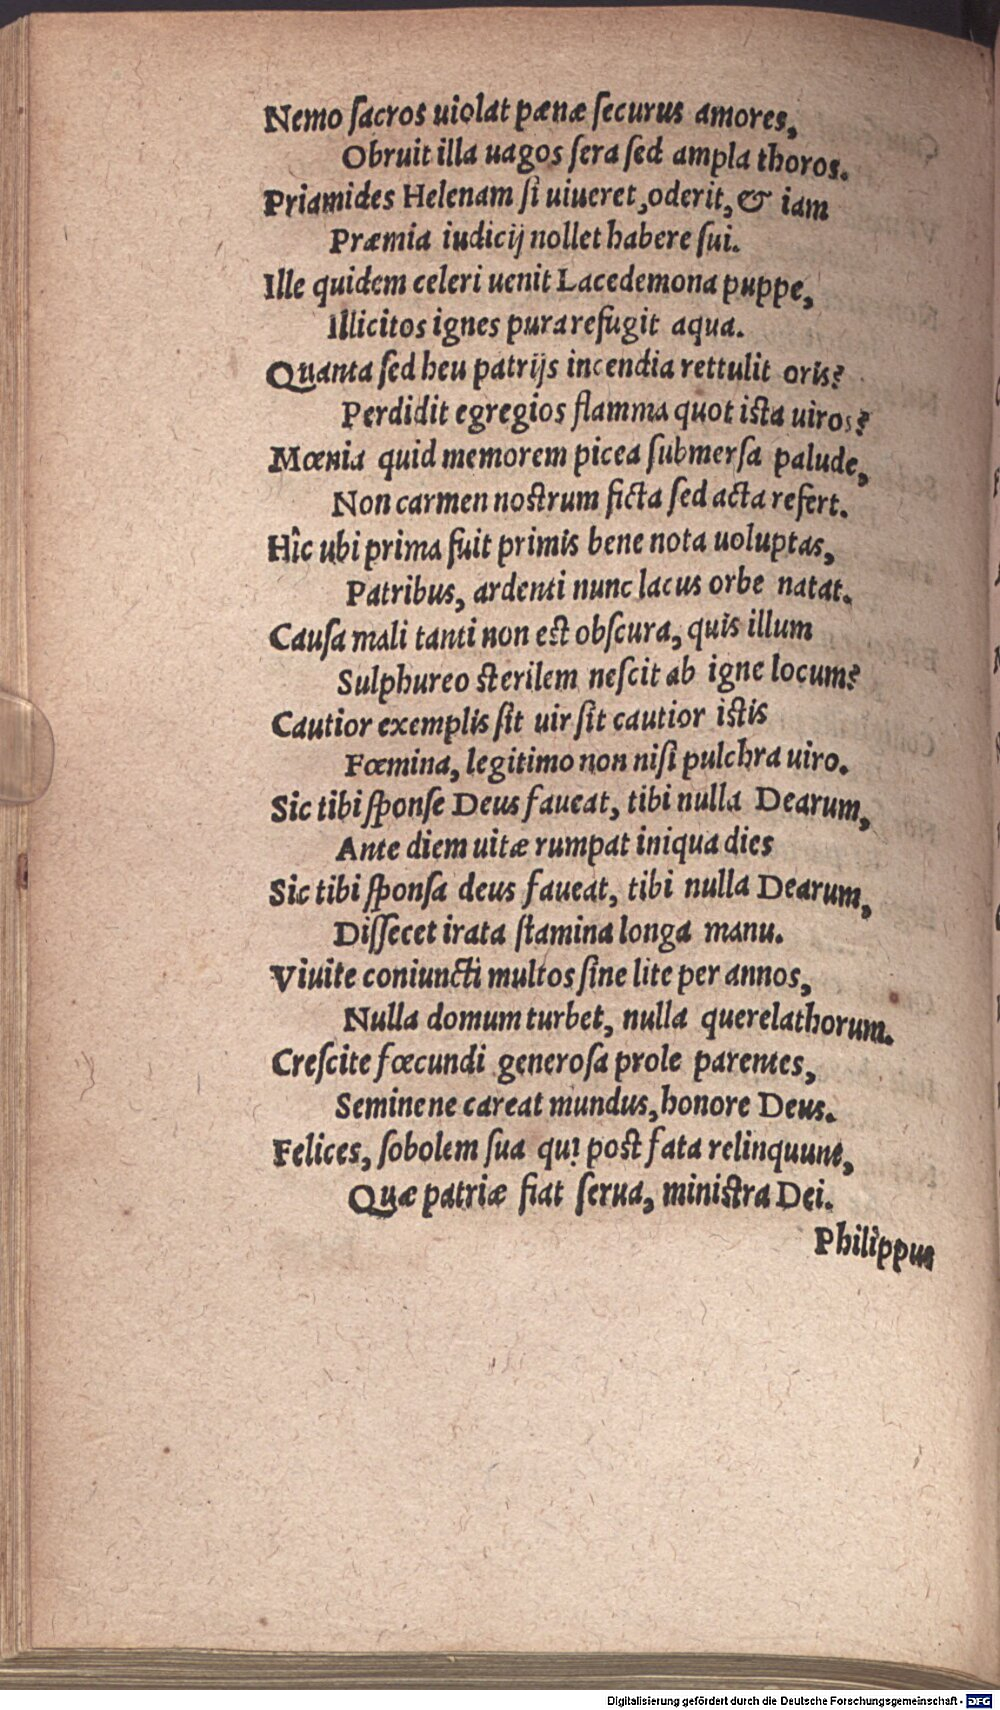 Nemo ſacros uiolat pænæ ſecurus amores,
Obruit illa uagos ſera ſed ampla thoros.
Priamides Helenam ſi uiueret, oderit, & iam
Præmia iudicij nollet habere ſui.
Ille quidem celeri uenit Lacedemona puppe,
Illicitos ignes pura refugit aqua.
Quanta ſed heu patrijs incendia rettulit oris?
Perdidit egregios flamma quot iſta uiros?
Mœnia quid memorem picea ſubmerſa palude,
Non carmen noſtrum ficta ſed acta refert.
Hîc ubi prima fuit primis bene nota uoluptas,
Patribus, ardenti nunc lacus orbe natat.
Cauſa mali tanti non eſt obſcura, quis illum
Sulphureo ſterilem neſcit ab igne locum?
Cautior exemplis ſit uir ſit cautior iſtis
Fœmina, legitimo non niſi pulchra uiro.
Sic tibi ſponſe Deus faueat, tibi nulla Dearum,
Ante diem uitæ rumpat iniqua dies
Sic tibi ſponſa deus faueat, tibi nulla Dearum,
Diſſecet irata ſtamina longa manu.
Viuite coniuncti multos ſine lite per annos,
Nulla domum turbet, nulla querela thorum.
Creſcite fœcundi generoſa prole parentes,
Semine ne careat mundus, honore Deus.
Felices, ſobolem ſua qui poſt fata relinquunt,
Quæ patriæ fiat ſerua, miniſtra Dei.
Philippus
Digitalisierung gefördert durch die Deutsche Forschungsgemeinschaft - DFG